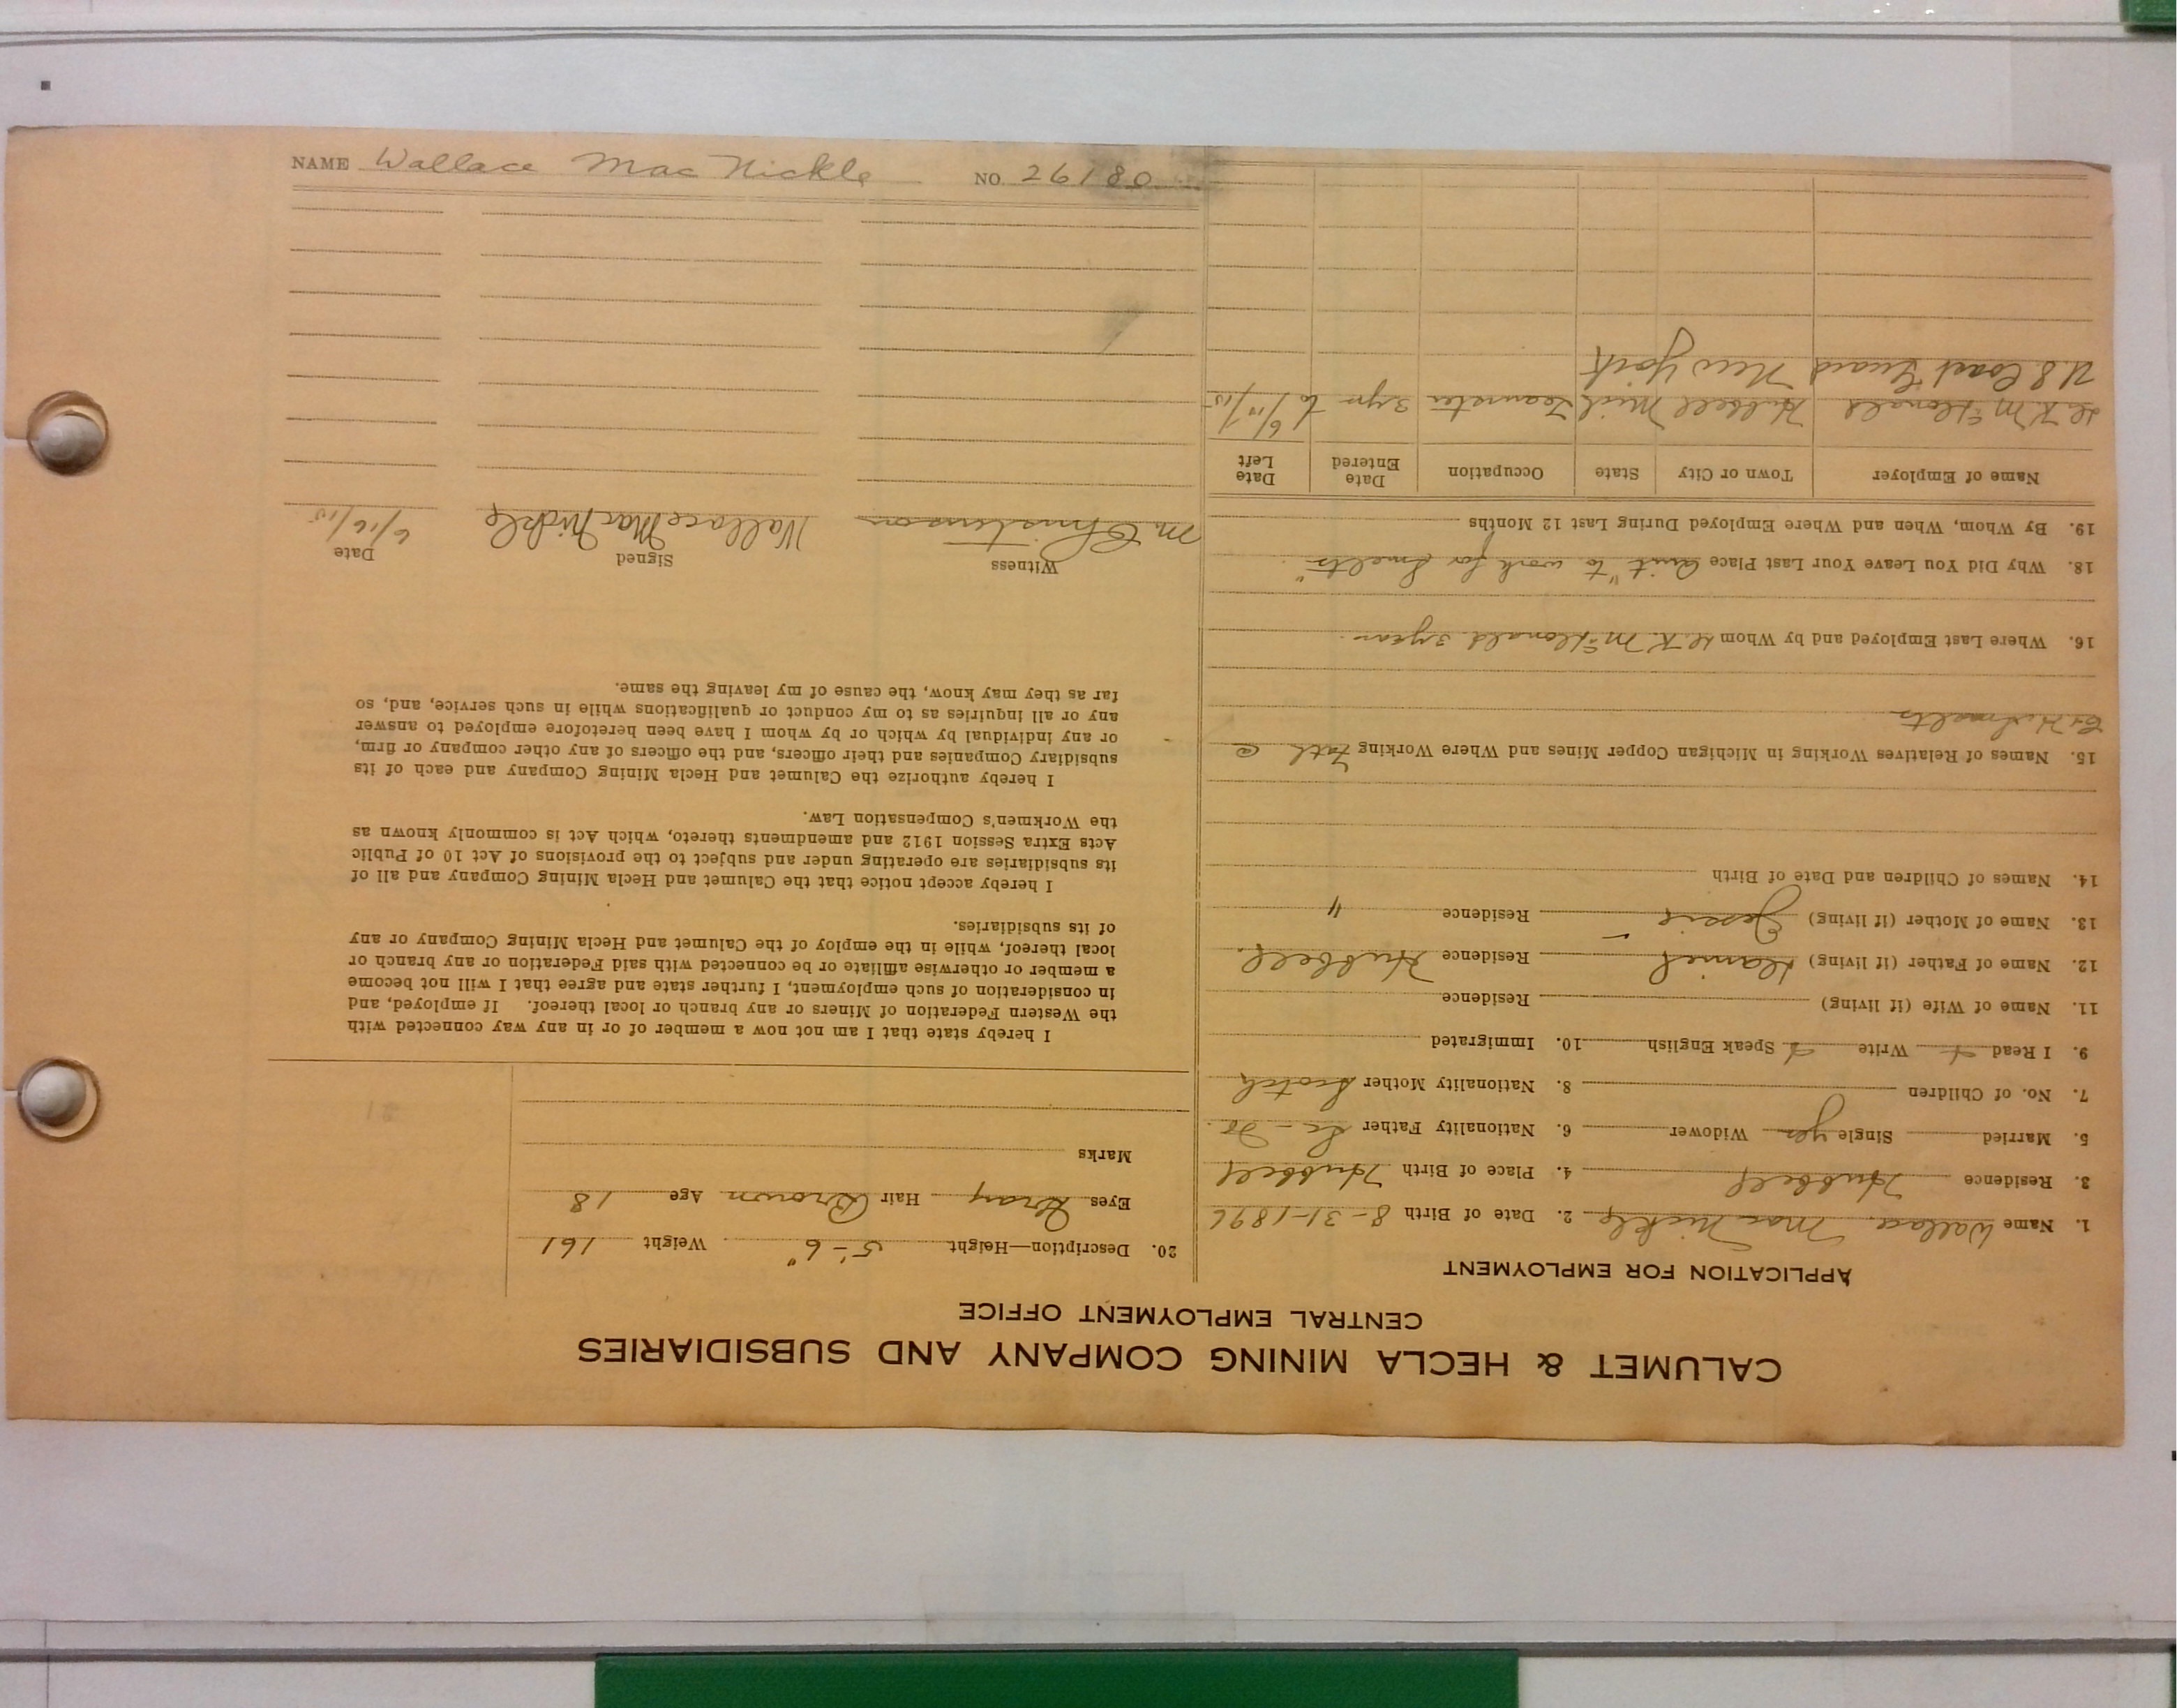 CALUMET & HECLA MINING COMPANY AND SUBSIDIARIES
CENTRAL EMPLOYMENT OFFICE
APPLICATION FOR EMPLOYMENT
1. Name Wallace Mac Nickle 2. Date of Birth 8-31-1896
3. Residence Hubbell 4. Place of Birth Hubbell
5. Married Single yes Widower 6. Nationality Father Sc-
7. No. of Children 8. Nationality Mother Scotch
9. I Read Write Speak English 10. Immigrated
11. Name of Wife (if living) Residence
12. Name of Father (if living) Daniel Residence Hubbell
13. Name of Mother (if living) Jessie Residence "
14. Names of Children and Date of Birth
15. Names of Relatives Working in Michigan Copper Mines and Where Working Fath @
C+H Smelts
16. Where Last Employed and by Whom McDonald 3 years
18. Why Did You Leave Your Last Place Quit "to work for Smelts"
19. By Whom, When and Where Employed During Last 12 Months
Name of Employer Town or City State Occupation Date Entered Date Left
McDonald Hubbell Mich Teamster 3 yrs to 6/14/15
U.S Coast Guard New York
20. Description—Height 5'-6" Weight 161
Eyes Gray Hair Brown Age 18
Marks
I hereby state that I am not now a member of or in any way connected with
the Western Federation of Miners or any branch or local thereof. If employed, and
in consideration of such employment, I further state and agree that I will not become
a member or otherwise affiliate or be connected with said Federation or any branch or
local thereof, while in the employ of the Calumet and Hecla Mining Company or any
of its subsidiaries.
I hereby accept notice that the Calumet and Hecla Mining Company and all of
its subsidiaries are operating under and subject to the provisions of Act 10 of Public
Acts Extra Session 1912 and amendments thereto, which Act is commonly known as
the Workmen's Compensation Law.
I hereby authorize the Calumet and Hecla Mining Company and each of its
subsidiary Companies and their officers, and the officers of any other company or firm,
or any individual by which or by whom I have been heretofore employed to answer
any or all inquiries as to my conduct or qualifications while in such service, and, so
far as they may know, the cause of my leaving the same.
Witness Signed Date
M Christenson Wallace MacNickle 6/16/15
NAME Wallace Mac Nickle NO. 26180